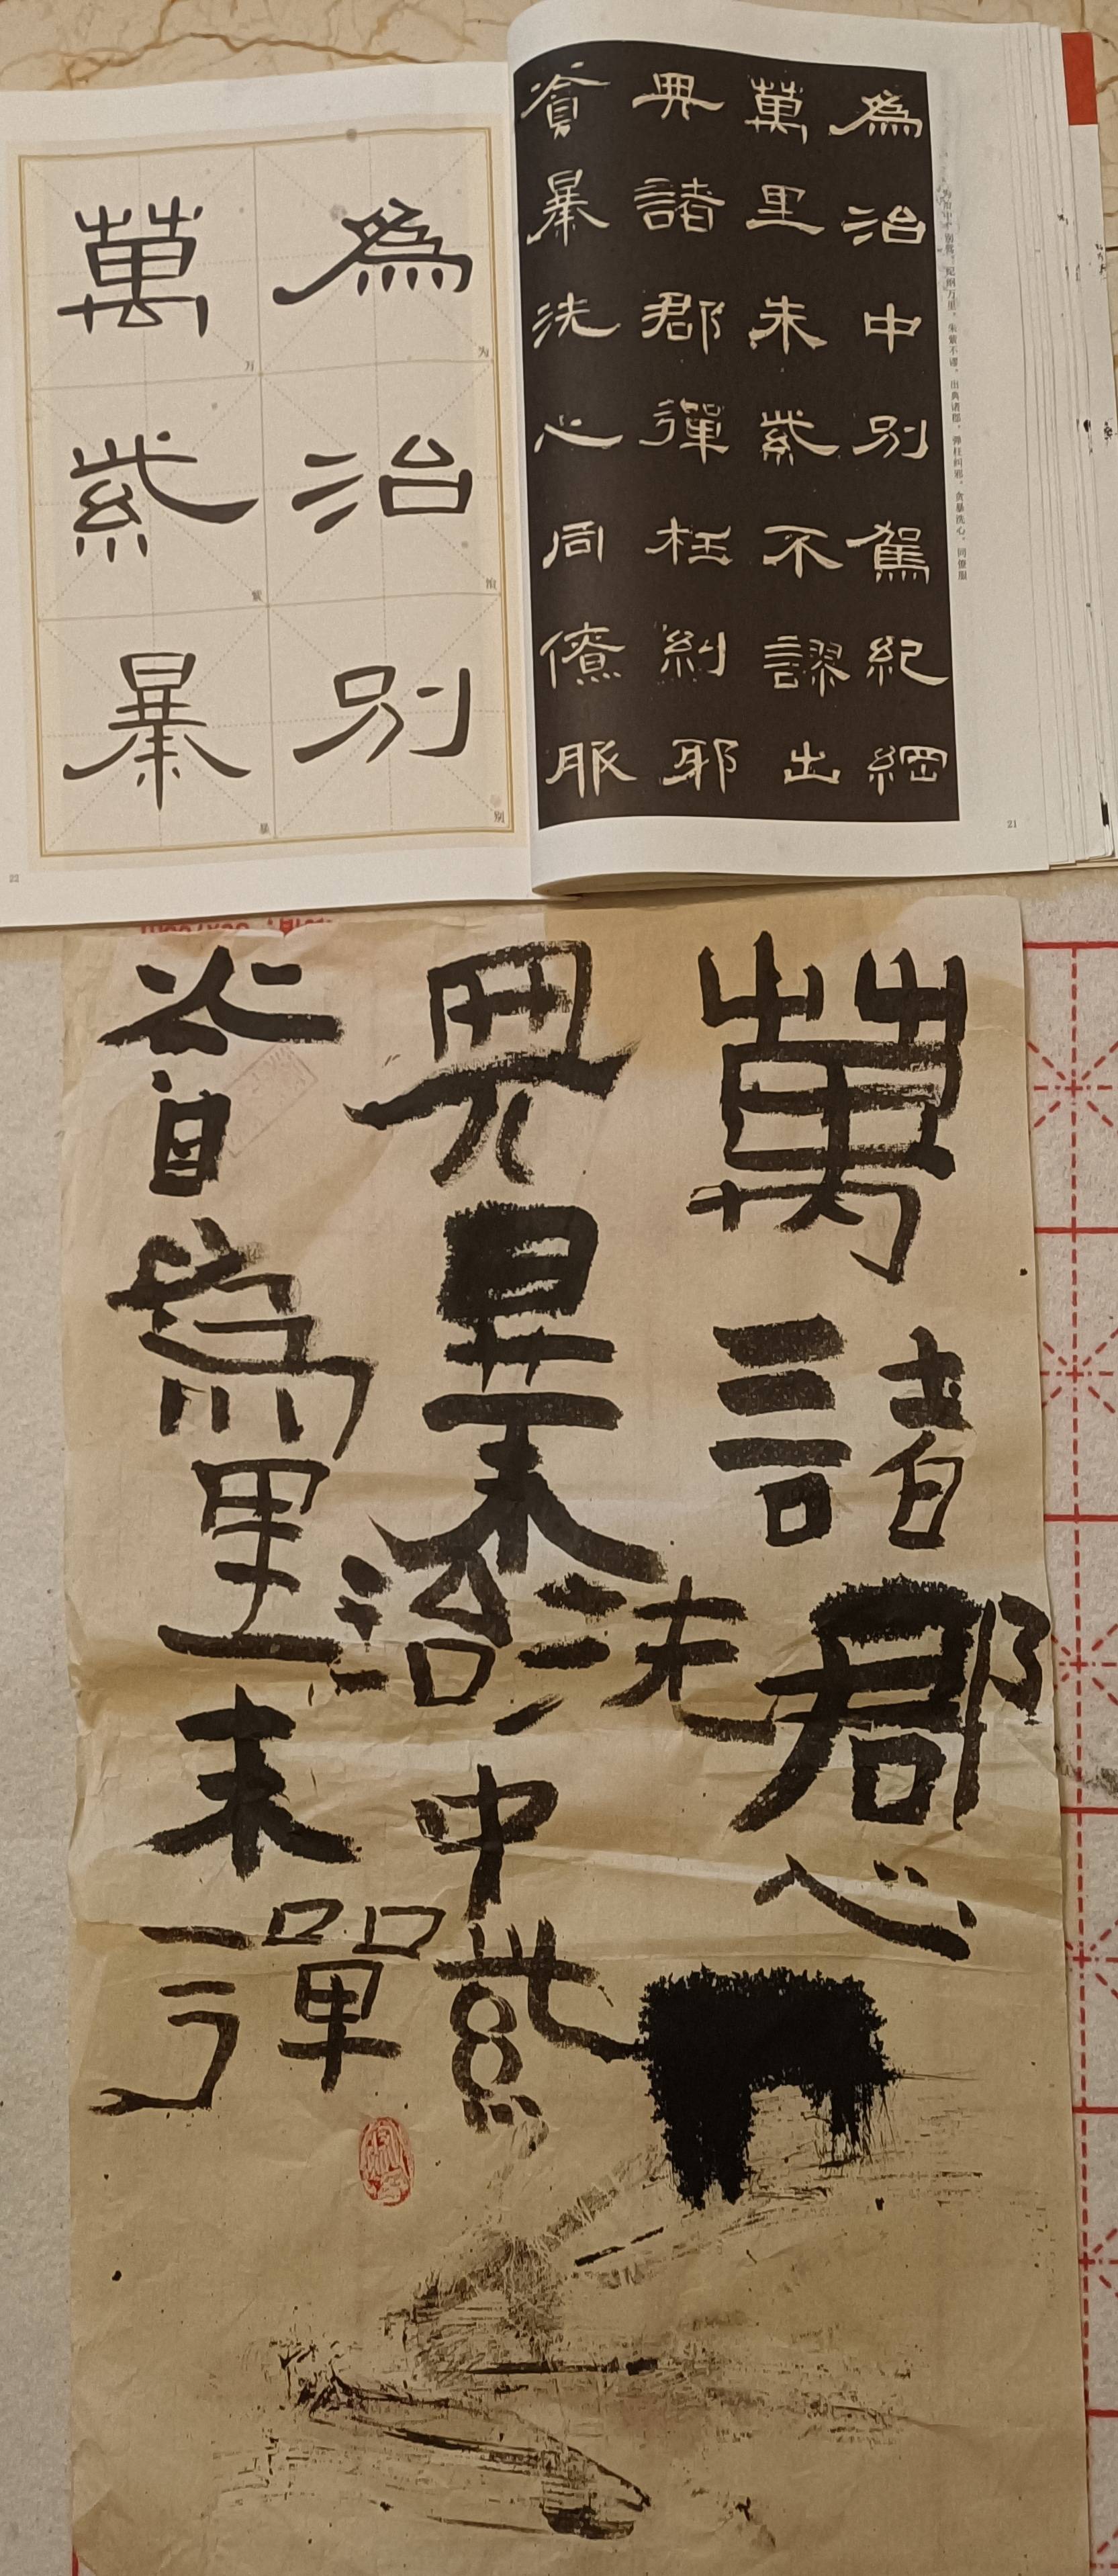 為治中別駕紀綱
萬里朱紫不謬出
典諸郡彈枉糾邪
貪暴洗心同僚服
为治中、别驾。纪纲万里，朱紫不谬。出典诸郡，弹枉纠邪，贪暴洗心，同僚服
21
為
为
治
治
別
别
萬
万
紫
紫
暴
暴
22
萬諸郡心
洗
典暴治中紫
貪為里朱彈